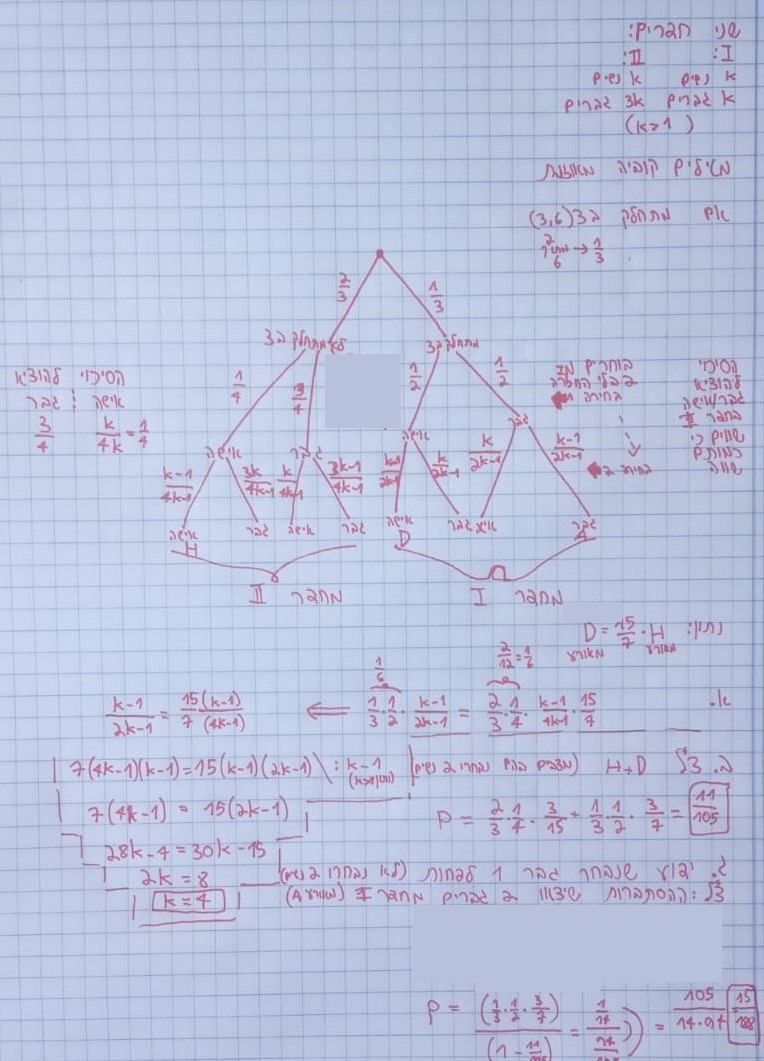 שני חברים:
I: II:
k נשים k נשים
k גברים 3k גברים
(k>1)
מטילים קוביה מאוזנת
אם מתחלק ב3 (3,6)
2/6 → 1/3
2/3 1/3
לא מתחלק ב3 מתחלק ב3
1/4 3/4 1/2 1/2
הסיכוי להוציא
אישה גבר
k/4k=1/4 3/4
בוחרים
בלי החזרה
בחירה
הסיכוי
להוציא
גבר/אישה
שווים כי
כמותם
שווה
אישה גבר אישה גבר
k-1/4k-1 3k/4k-1 k/4k-1 3k-1/4k-1 k-1/2k-1 k/2k-1 k/2k-1 k-1/2k-1
אישה גבר אישה גבר אישה גבר גבר
H D A
מחבר II מחבר I
נתון: D = 15/7 · H
מאורע מאורע
1/6 2/12=1/6
א. 1/3 · 1/2 · k-1/2k-1 = 2/3 · 1/4 · k-1/4k-1 · 15/7
⇐ k-1/2k-1 = 15(k-1)/7(4k-1)
7(4k-1)(k-1) = 15(k-1)(2k-1) \ : k-1
7(4k-1) = 15(2k-1)
28k-4 = 30k-15
2k = 8
k = 4
ב. צ"ל H+D (מצבים בהם נבחרו 2 נשים)
P = 2/3 · 1/4 · 3/15 + 1/3 · 1/2 · 3/7 = 11/105
ג. ידוע שנבחר גבר 1 לפחות (לא נבחרו 2 נשים)
צ"ל: ההסתברות שיצאו 2 גברים מחבר I (מאורע A)
P = (1/3 · 1/2 · 3/7)/(1 - 11/105) = 1/14 = 105/14·94 15/188